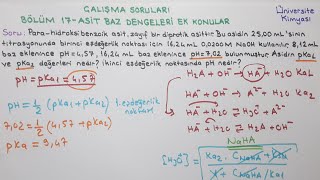 ÇALIŞMA SORULARI
BÖLÜM 17-ASİT BAZ DENGELERİ EK KONULAR
Üniversite
Kimyası
Soru: Para-hidroksi benzoik asit, zayıf bir diprotik asittir. Bu asidin 25,00 mL'sinin
titrasyonunda birinci eşdeğerlik noktası için 16,24 mL 0,0200M NaOH kullanılır; 8,12mL
baz eklenince pH=4,57, 16,24 mL baz eklenince pH=7,02 bulunmuştur. Asidin pKa1
ve pKa2 değerleri nedir? İkinci eşdeğerlik noktasında pH nedir?
pH = pKa1 = 4,57
H2A + OH- → HA- + H2O
pH = 1/2 (pKa1 + pKa2)
HA- + OH- → H2O + A2-
7,02 = 1/2 (4,57 + pKa2)
HA- + H2O ⇌ H3O+ + A2-
HA- + H2O ⇌ H2A + OH-
pKa = 9,47
NaHA
[H3O+] = √ Ka2 . CNaHA + Ksu
1 + CNaHA / Ka1